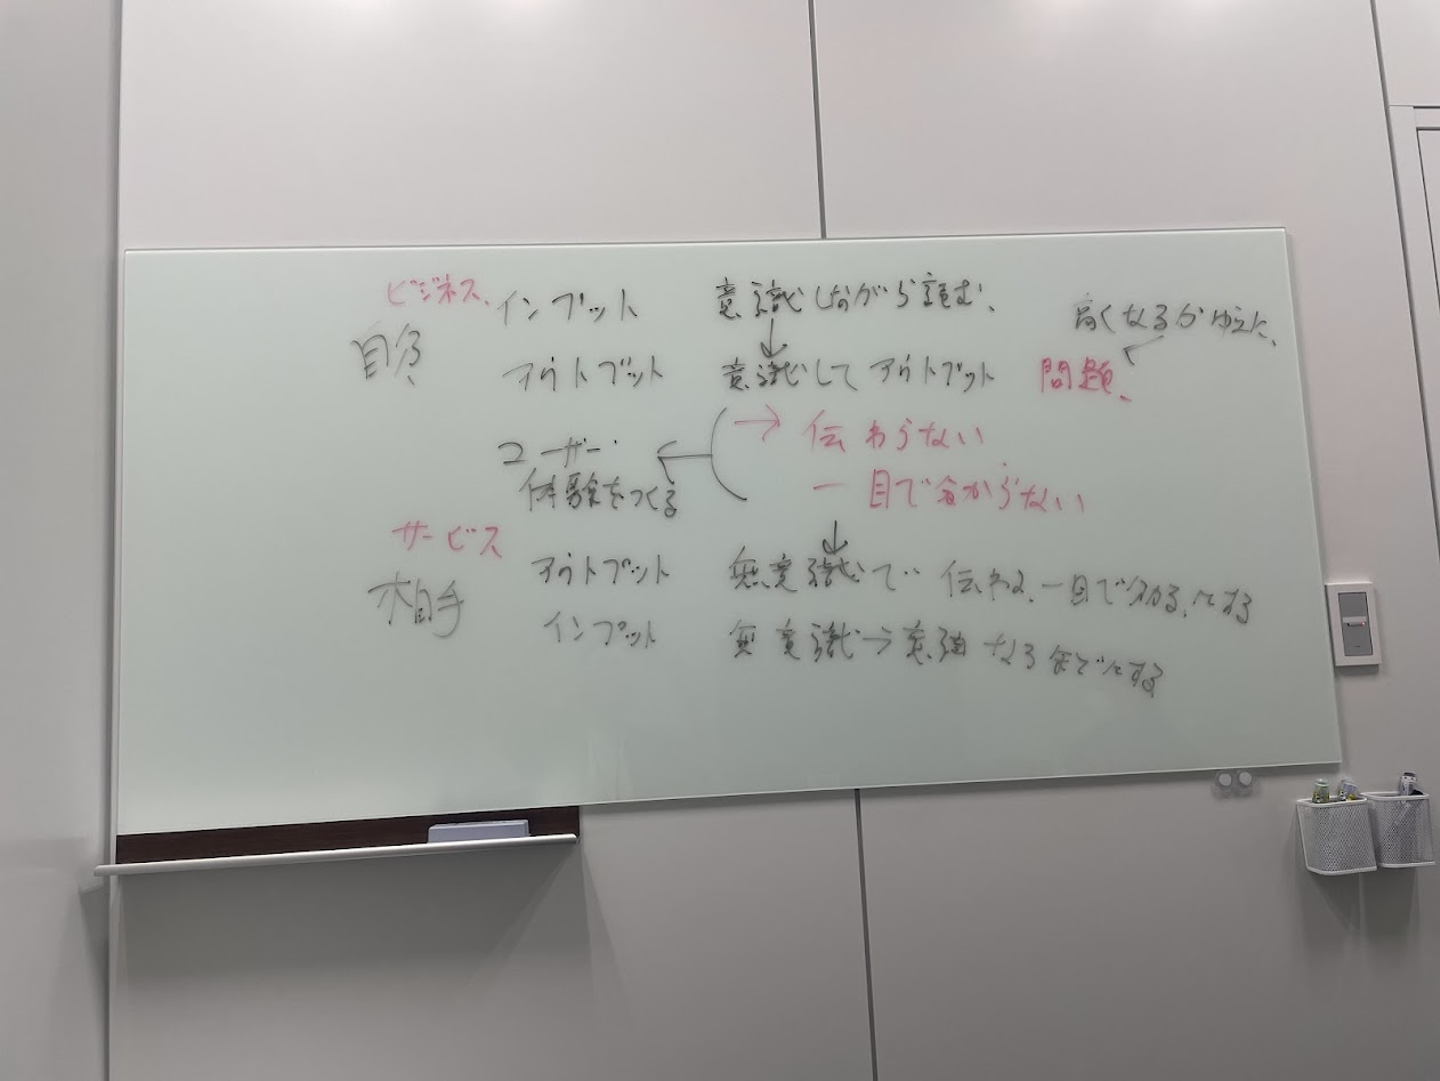 ビジネス、インプット 意識しながら読む、
高くなるがゆえに、
自分 アウトプット 意識して アウトプット 問題、
→ 伝わらない
ユーザー ←
体験をつくる 一目で分からない
サービス
↓
アウトプット 無意識で 伝わる、一目で分かる、にする
相手 インプット 無意識→意識 なる までにする